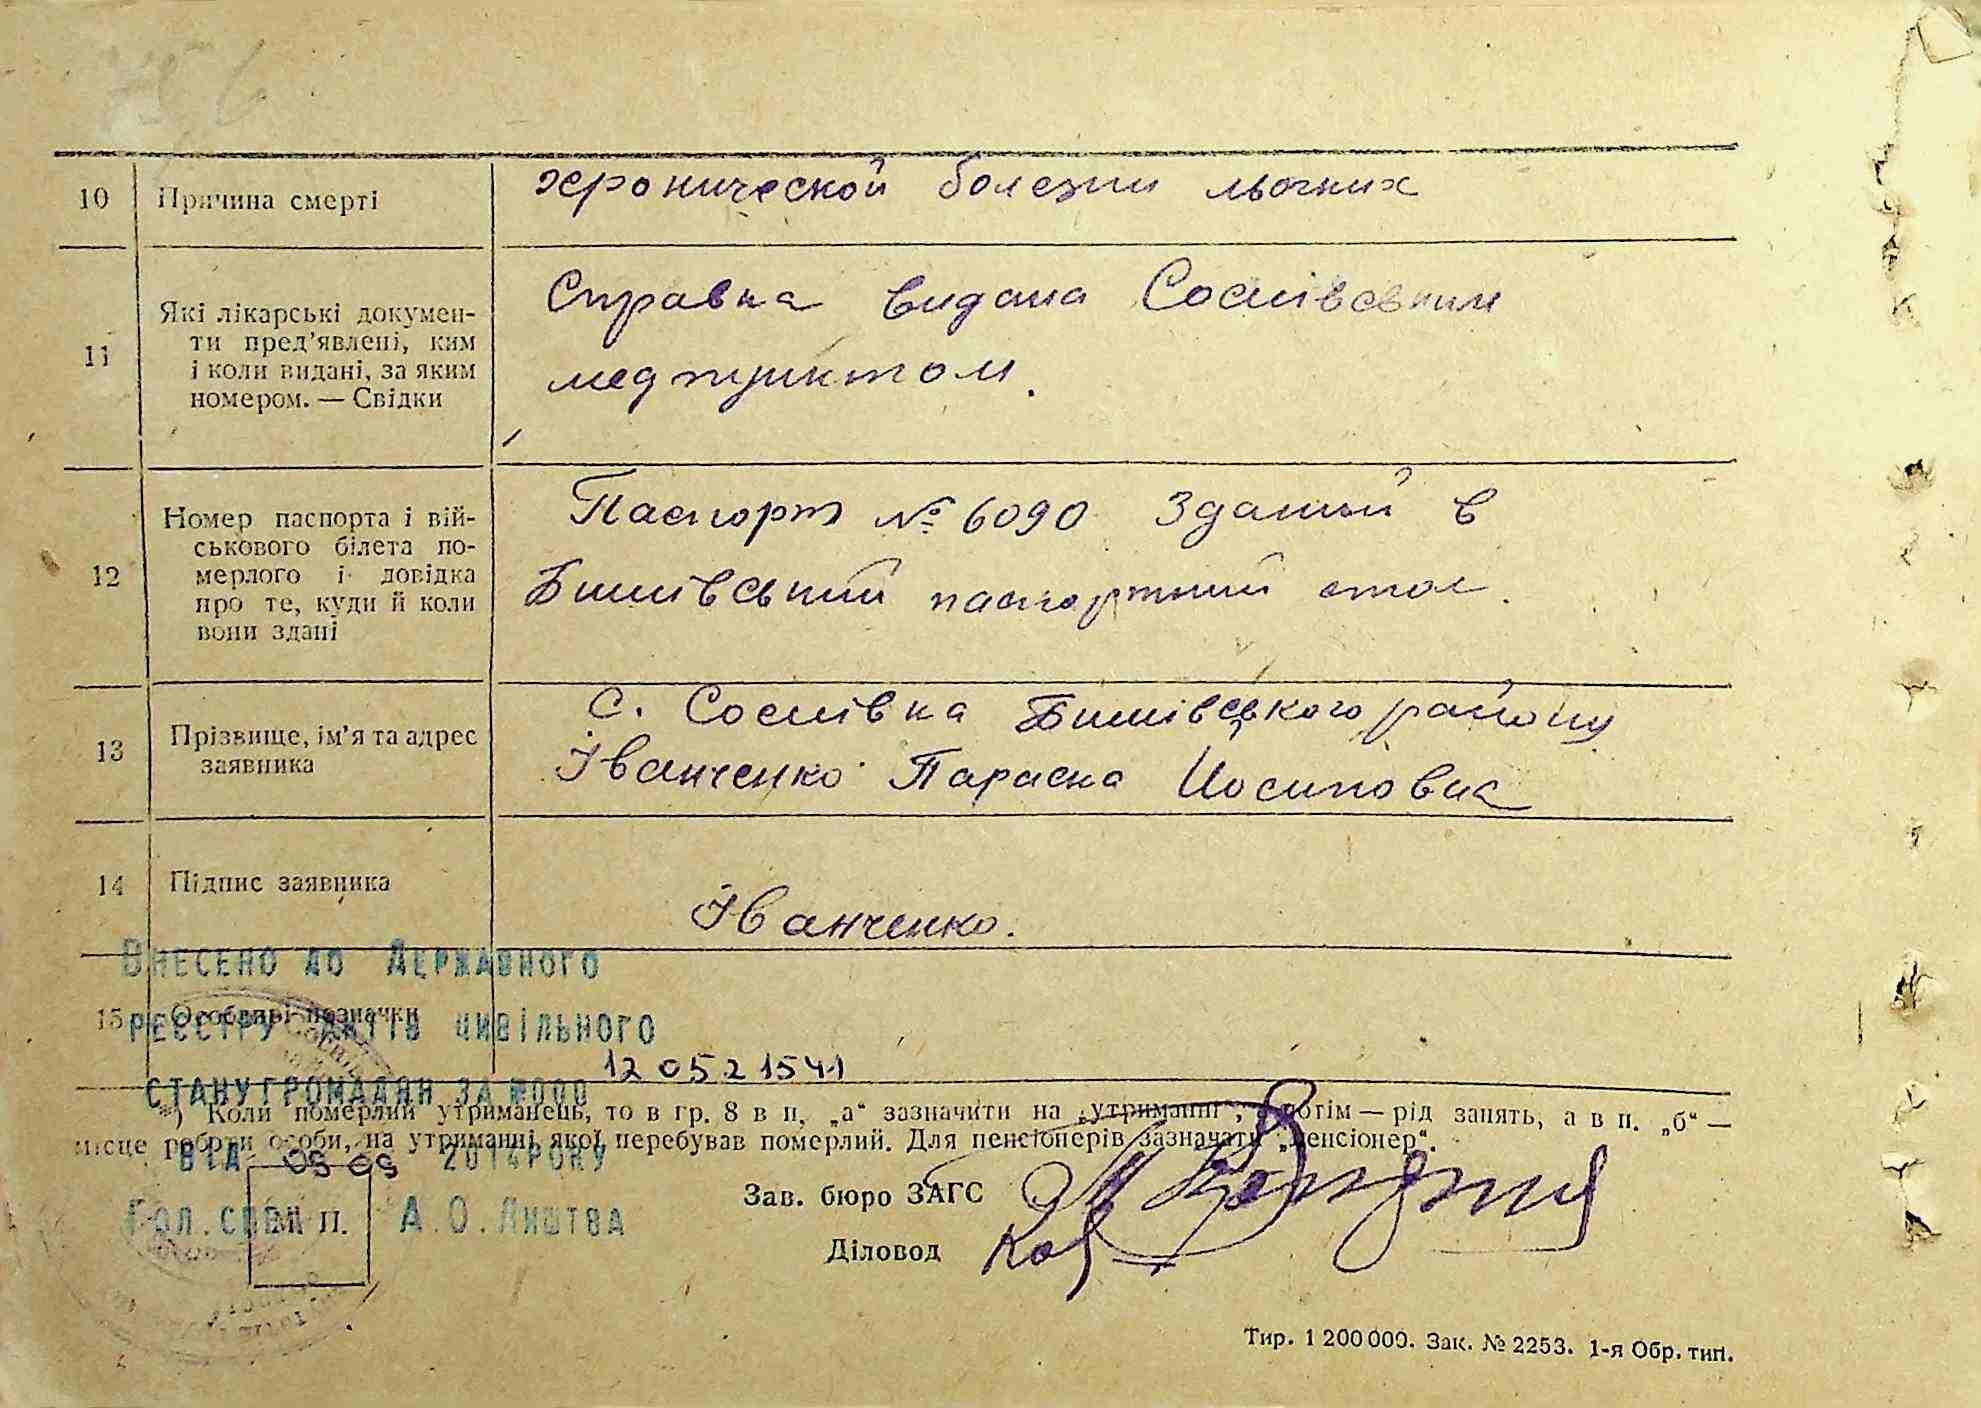 10 Причина смерті хронической болезни льогких
11 Які лікарські докумен-
ти пред'явлені, ким
і коли видані, за яким
номером. — Свідки
Справка видана Сосиївським
медпунктом.
12 Номер паспорта і вій-
ськового білета по-
мерлого і довідка
про те, куди й коли
вони здані
Паспорт № 6090 Зданий в
Бишівський паспортний стол.
13 Прізвище, ім'я та адрес
заявника
с. Соснівка Бишівського району
Іванченко Параска Йосиповна
14 Підпис заявника
Іванченко.
15 Особливі позначки
Внесено до Державного
реєстру актів цивільного
стану громадян за №000 12 0521541
від 09 09 2014 року
Гол. спец А.О. Лиштва
*) Коли померлий утриманець, то в гр. 8 в п. „а“ зазначити на „утриманні“, а потім — рід занять, а в п. „б“ —
місце роботи особи, на утриманні якої перебував померлий. Для пенсіонерів зазначати „пенсіонер“.
Зав. бюро ЗАГС
Діловод
М. П.
Тир. 1 200 000. Зак. № 2253. 1-я Обр. тип.